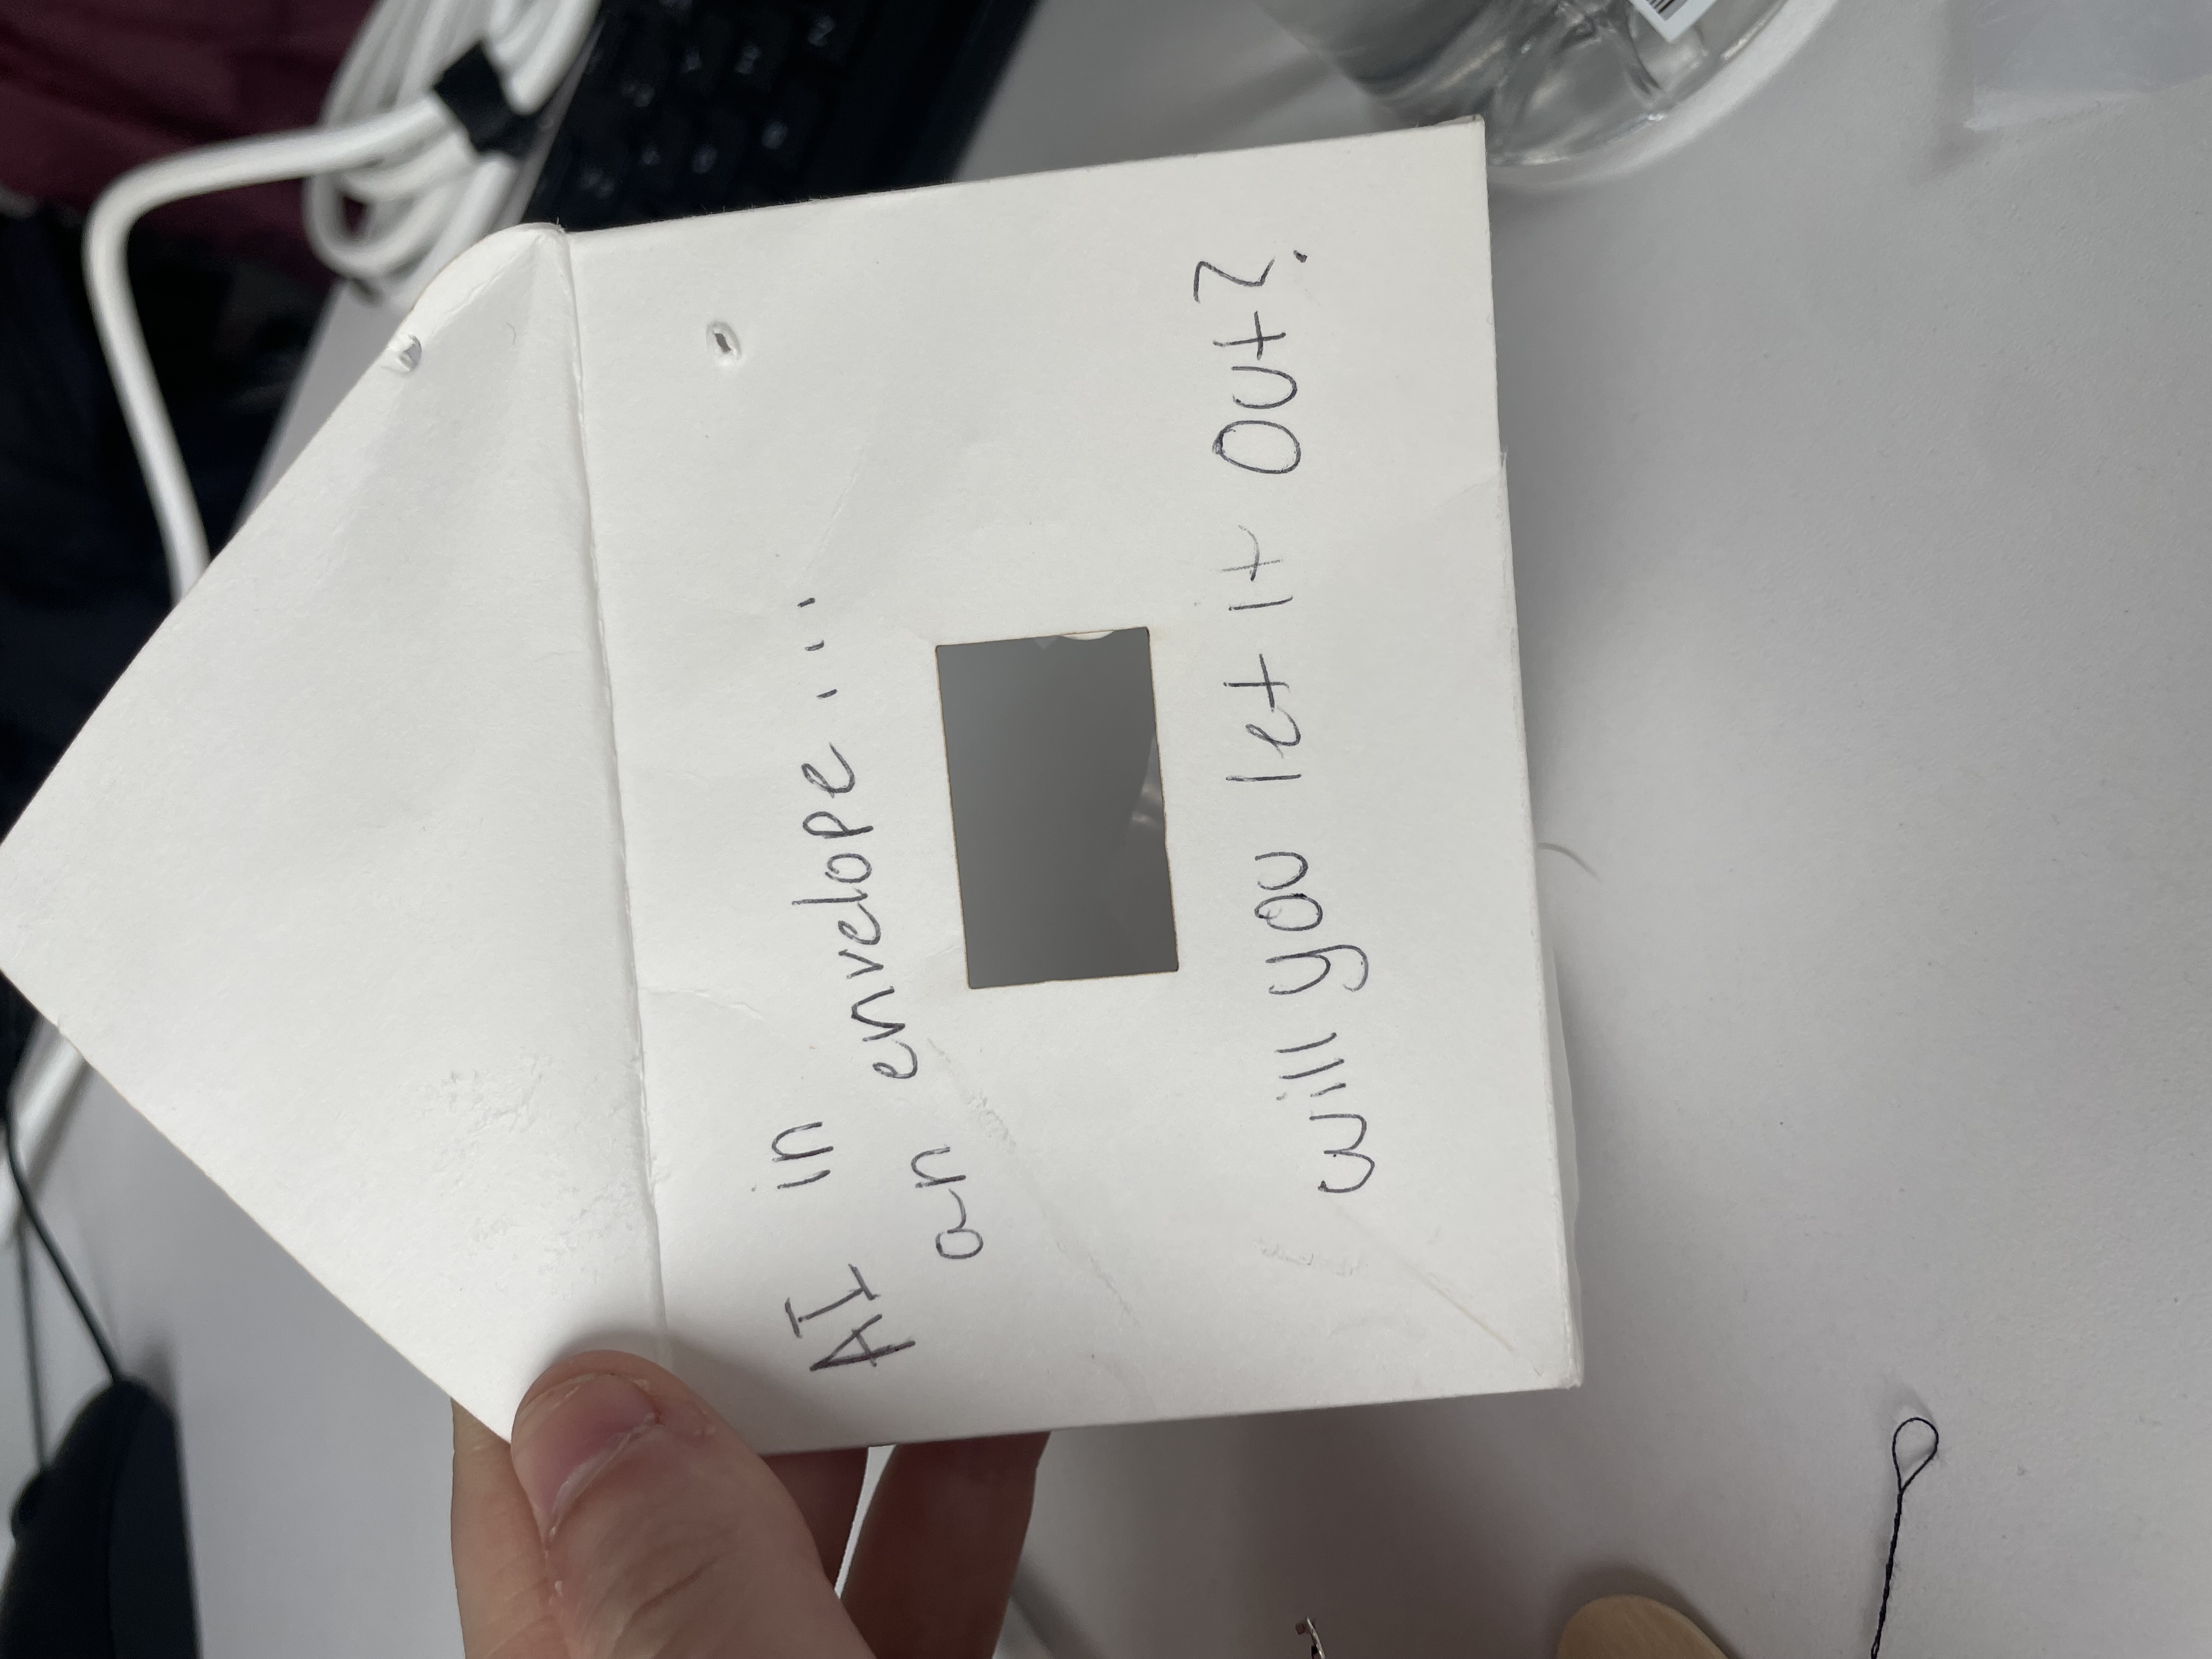 AI in
an envelope...
will you let it Out?